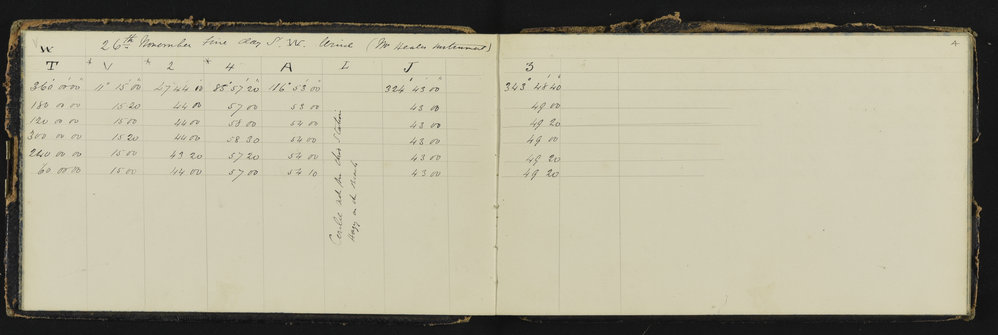 W 26th November fine day S. W. Wind (Mr Heales Instrument) A
T * V * 2 * 4 A L J 3
360° 00' 00" 11° 15' 00" 47 44 00 85° 57' 20" 116° 53' 00" 324° 43' 00" 343° 48' 40"
180 00 00 15 20 44 00 57 00 53 00 43 00 49 00
120 00 00 15 00 44 00 58 00 54 00 43 00 49 20
300 00 00 15 20 44 00 58 30 54 00 43 00 49 00
240 00 00 15 00 43 20 57 20 54 00 43 00 49 20
60 00 00 15 00 44 00 57 00 54 10 43 00 49 20
this Station